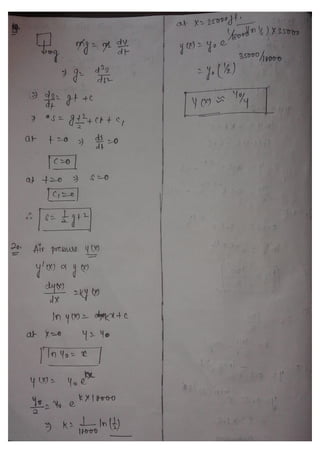 mg
mg = m dv/dt
⇒ g = d²s/dt²
⇒ ds/dt = gt + c
⇒ s = gt²/2 + ct + c₁
at t=0 ⇒ ds/dt = 0
c=0
at t=0 ⇒ s=0
c₁=0
∴ s = 1/2 gt²
20. Air pressure y(x)
y'(x) α y(x)
dy(x)/dx = ky(x)
ln y(x) = kx + c
at x=0 y = y₀
ln y₀ = c
y(x) = y₀ e^kx
y₀/2 = y₀ e^k×18000
⇒ k = 1/18000 ln(1/2)
at x = 35000ft.
y(x) = y₀ e^(1/18000 ln 1/2) × 35000
= y₀ (1/2)^35000/18000
y(x) ≈ y₀/4